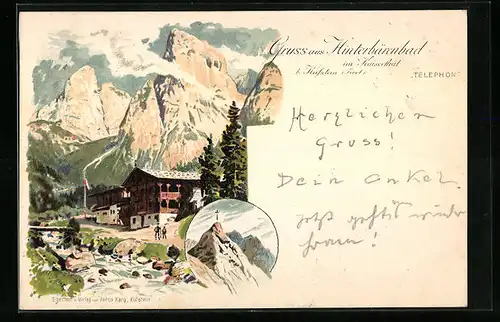 Gruss aus Hinterbärenbad
im Kaiserthal
b. Kufstein Tirol.
"TELEPHON"
Herzlichen
Gruss!
Dein Onkel.
jetzt geht's wieder
Eigenthum u. Verlag von Anton Karg, Kufstein